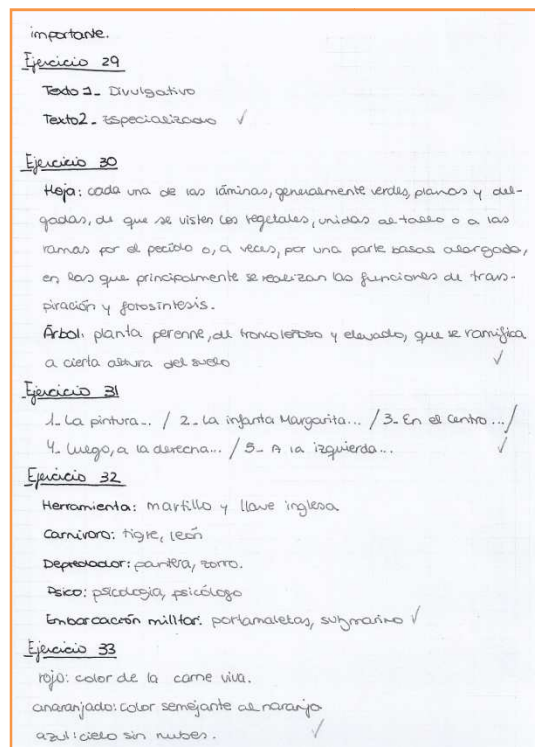 importante.
Ejercicio 29
Texto 1_ Divulgativo
Texto2_ Especializado ✓
Ejercicio 30
Hoja: cada una de las láminas, generalmente verdes, planas y del-
gadas, de que se visten los vegetales, unidas al tallo o a las
ramas por el pecíolo o, a veces, por una parte basal alargada,
en las que principalmente se realizan las funciones de trans-
piración y fotosíntesis.
Árbol: planta perenne, de tronco leñoso y elevado, que se ramifica
a cierta altura del suelo ✓
Ejercicio 31
1_ La pintura... / 2_ La infanta Margarita... / 3_ En el centro... /
4_ Luego, a la derecha... / 5_ A la izquierda... ✓
Ejercicio 32
Herramienta: martillo y llave inglesa
Carnívoro: tigre, león
Depredador: pantera, zorro.
Psico: psicología, psicólogo
Embarcación militar: portamaletas, submarino ✓
Ejercicio 33
rojo: color de la carne viva.
anaranjado: color semejante al naranja
azul: cielo sin nubes. ✓